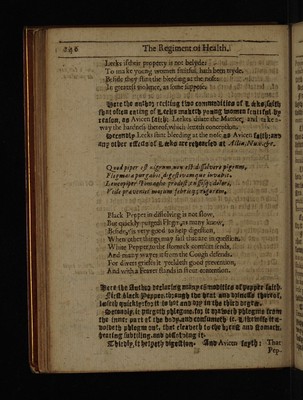 The Regiment of Health.
Leeks if their property is not belyde:
To make young women fruitfull, hath been tryde.
Beside they stint the bleeding at the nose:
In greatest violence, as some suppose.
Here the author reciting two commodities of Leeks, saith
that often eating of Leeks maketh young women fruitful, by
reason, as Avicen saith; Leeks dilate the Matrice, and take a-
way the hardness thereof, which letteth conception.
Secondly Leeks stint bleeding at the nose, as Avicen saith: and
many other effects of Leeks are rehearsed at
Quod piper est nigrum, non est dissolvere pigrum,
Phlegmata purgabit, digestivamque iuvabit.
Leucopiper stomacho prodest, tussisque dolori,
Utile praeveniet motum febrisque rigorem.
Black Pepper in dissolving is not slow,
But quickly purgeth Flegm, as many know,
Besides, tis very good to help digestion,
When other things may fail that are in question.
White Pepper to the stomack comfort sends,
And many wayes it from the Cough defends.
For divers griefes it yeeldeth good prevention,
And with a Feaver stands in stout contention.
Here the Author declaring many commodities of pepper saith.
First black Pepper, through the heat and driness thereof,
loseth quickly: for it is hot and dry in the third degree.
Secondly, it purgeth phlegme, for it draweth phlegme from
the inner part of the body, and consumeth it. Likewise it a-
voideth phlegm out, that cleaveth to the breast and stomach,
heating subtiling, and dissolving it.
Thirdly, it helpeth digestion. And Avicen sayth: That
Pep-